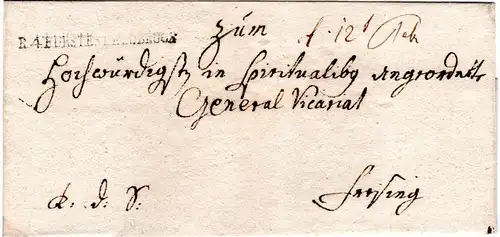 zum
R.4.FÜRSTENFELDBRUCK
Hochwürdigst in Spiritualiby angeordnette
General Vicariat
R: d: S: Freysing